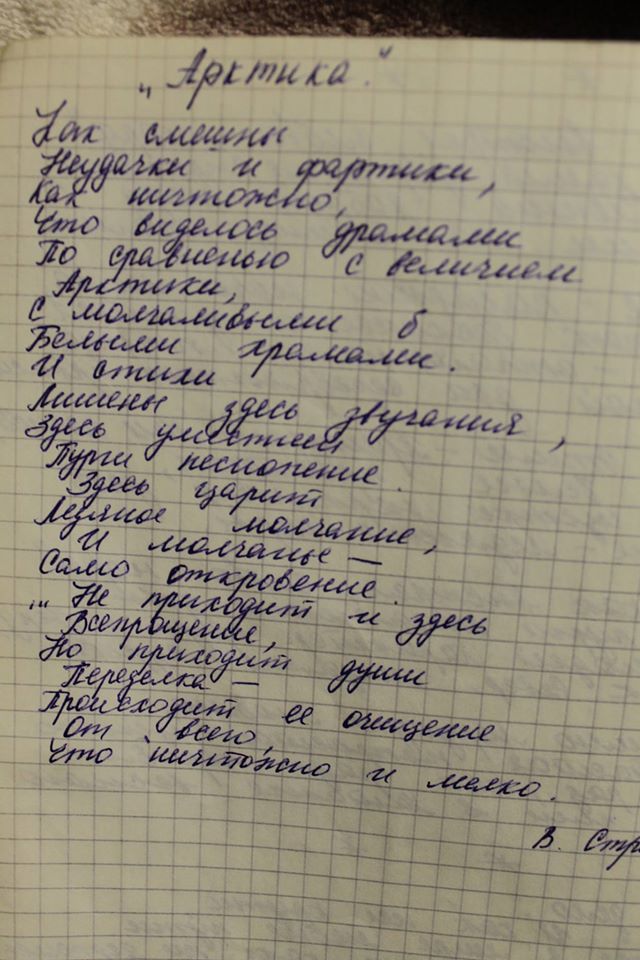 „Арктика."
Как смешны
Неудачки и фартики,
Как ничтожно,
Что виделось драмами
По сравненью с величием
Арктики,
С молчаливыми б
Белыми храмами.
И стихи
Лишены здесь звучания,
Здесь уместней
Пурги песнопение.
Здесь царит
Ледяное молчание,
И молчанье —
Само откровение.
... Не приходит и здесь
Всепрощение,
Но приходит души
Переделка —
Происходит ее очищение
От всего
Что ничтожно и мелко.
В. Стр